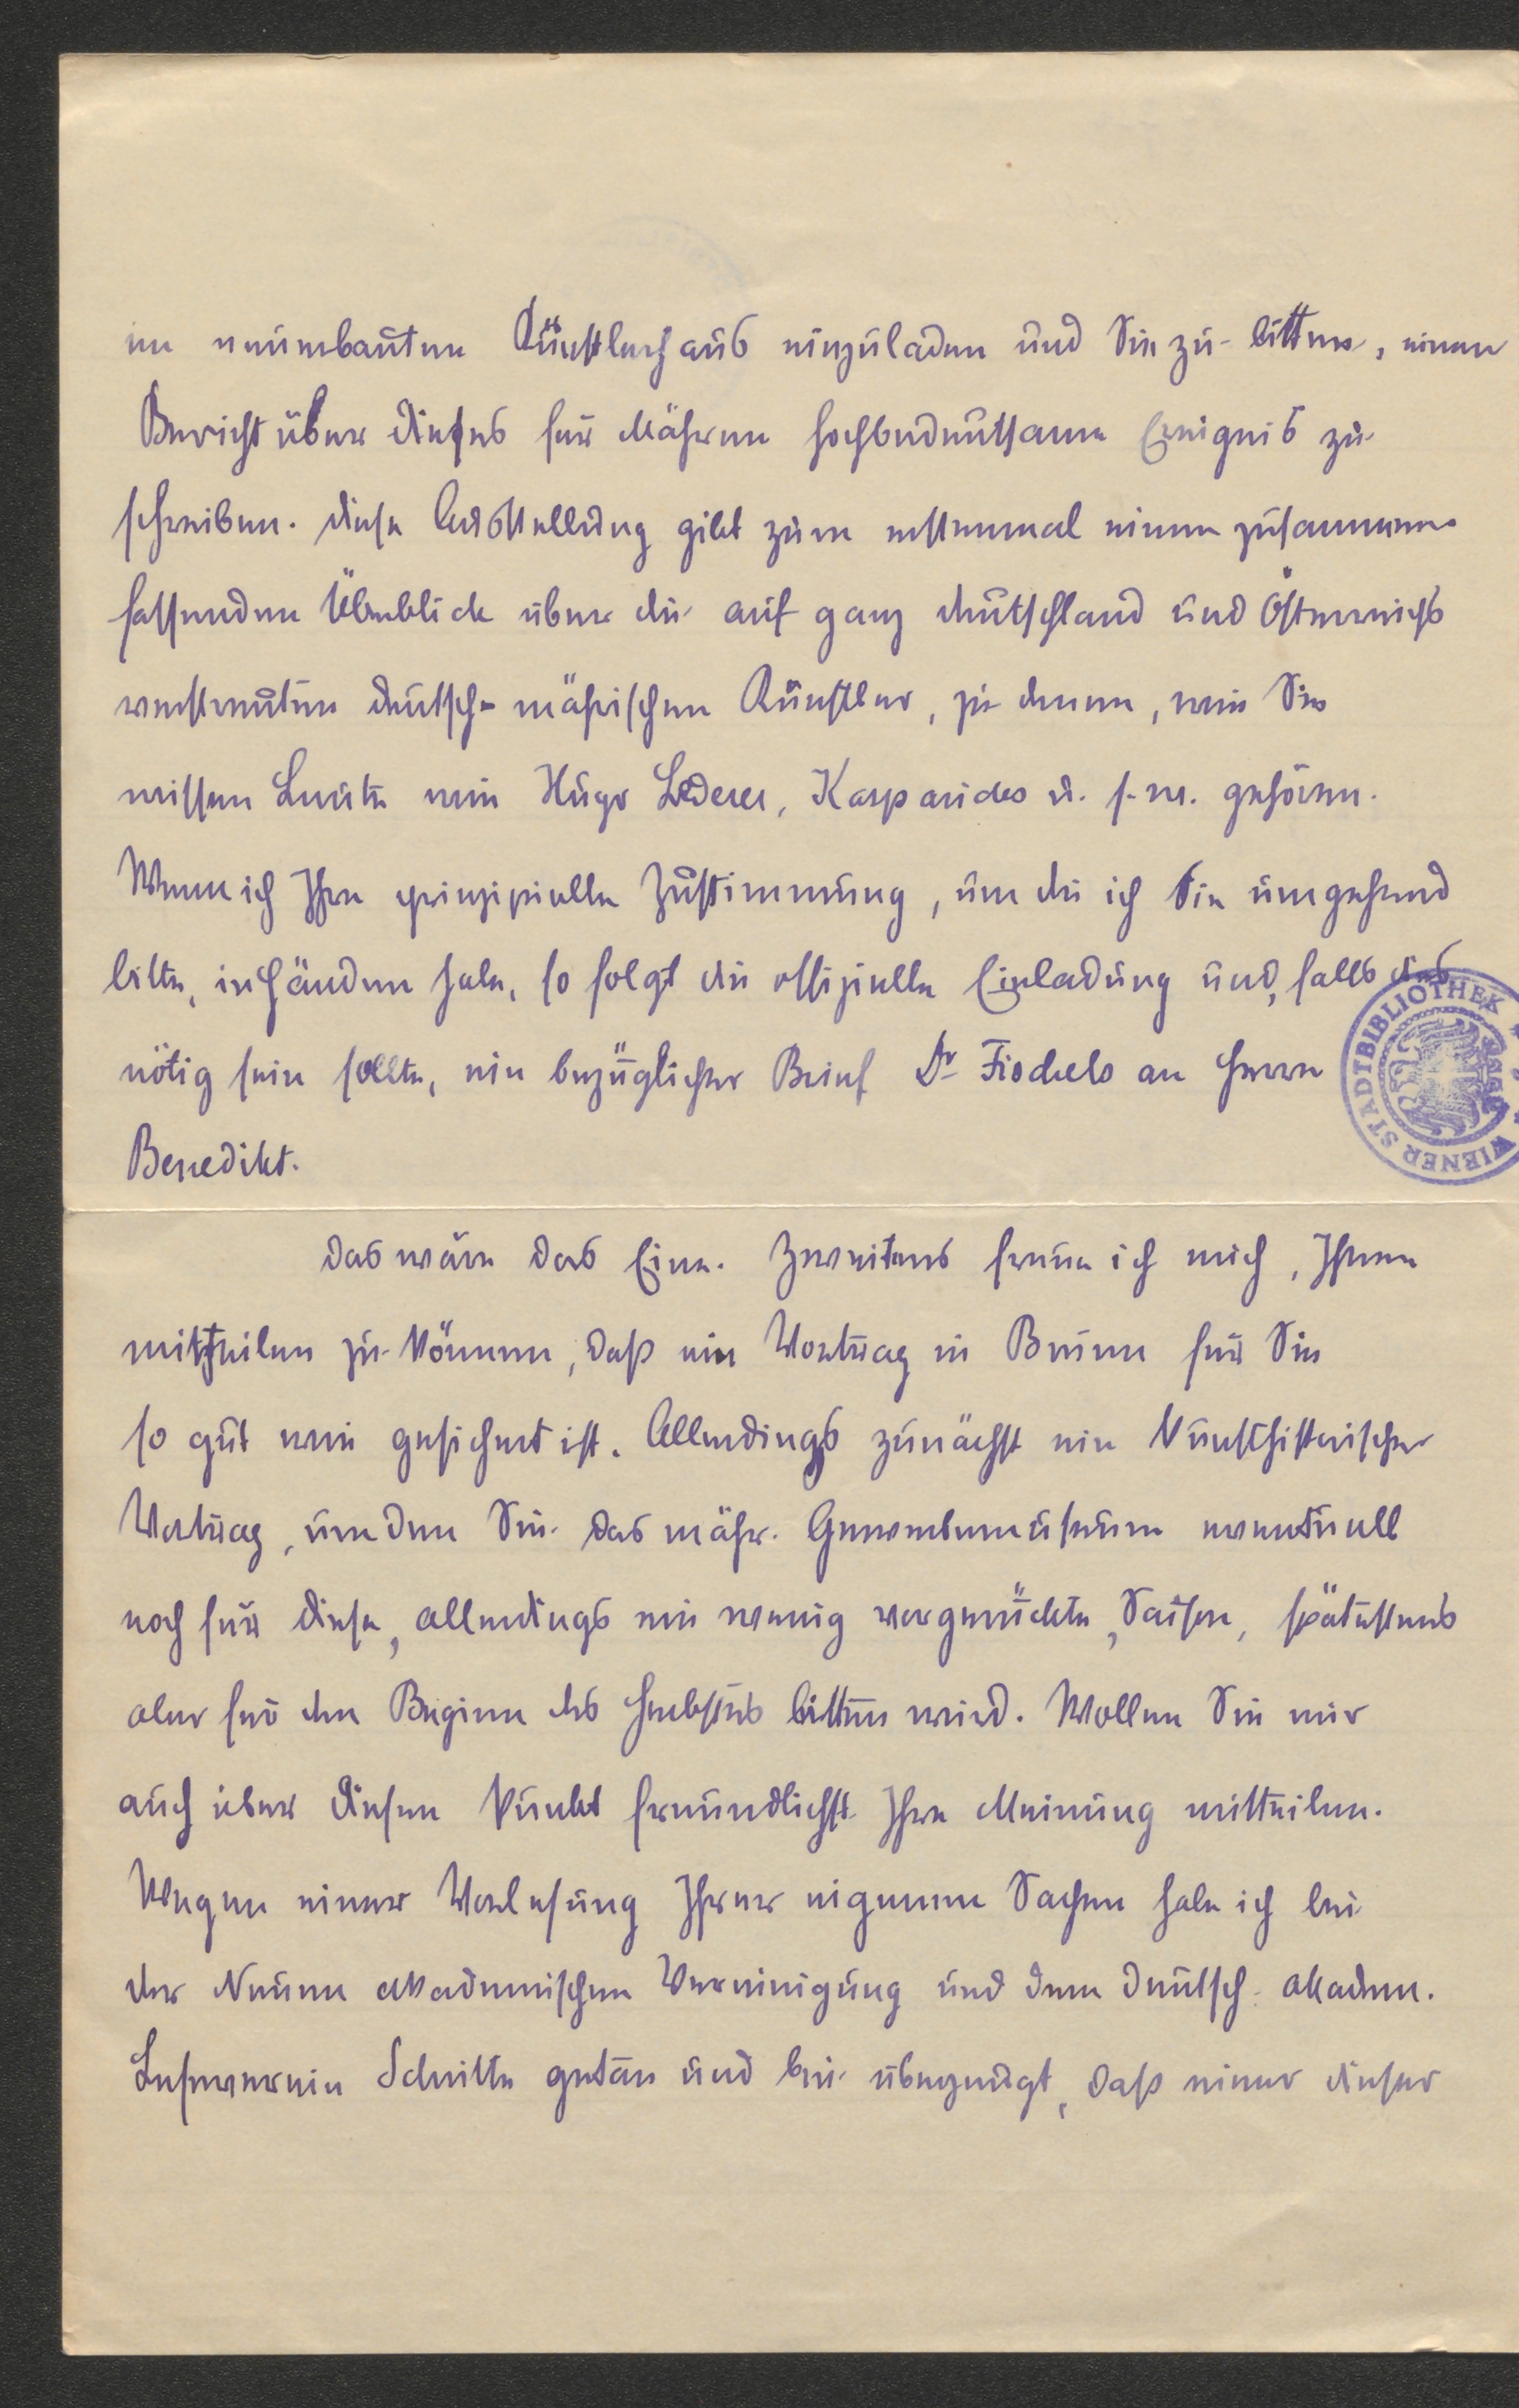 im neuerbauten Künstlerhaus einzuladen und Sie zu bitten, einen
Bericht über dieses für Mähren hochbedeutsame Ereignis zu
schreiben. Diese Ausstellung gibt zum erstenmal einen zusammen-
fassenden Überblick über die auf ganz Deutschland und Österreich
verstreuten deutsch-mährischen Künstler, zu denen, wie Sie
wissen Leute wie Hugo Lederer, Kasparides u. s. w. gehören.
Wenn ich Ihre prinzipielle Zustimmung, um die ich Sie umgehend
bitte, in Händen habe, so folgt die offizielle Einladung und, falls dies
nötig sein sollte, ein bezüglicher Brief Dr Fischels an Herrn
Benedikt.
Das wäre das Eine. Zweitens freue ich mich, Ihnen
mitteilen zu können, daß ein Vortrag in Brünn für Sie
so gut wie gesichert ist. Allerdings zunächst ein kunsthistorischer
Vortrag, um den Sie das mähr. Gewerbemuseum eventuell
noch für diese, allerdings ein wenig vorgerückte, Saison, spätestens
aber für den Beginn des Herbstes bitten wird. Wollen Sie mir
auch über diesen Punkt freundlichst Ihre Meinung mitteilen.
Wegen einer Vorlesung Ihrer eigenen Sachen habe ich bei
der Neuen akademischen Vereinigung und dem deutsch-akadem.
Leseverein Schritte getan und bin überzeugt, daß einer dieser
WIENER STADTBIBLIOTHEK